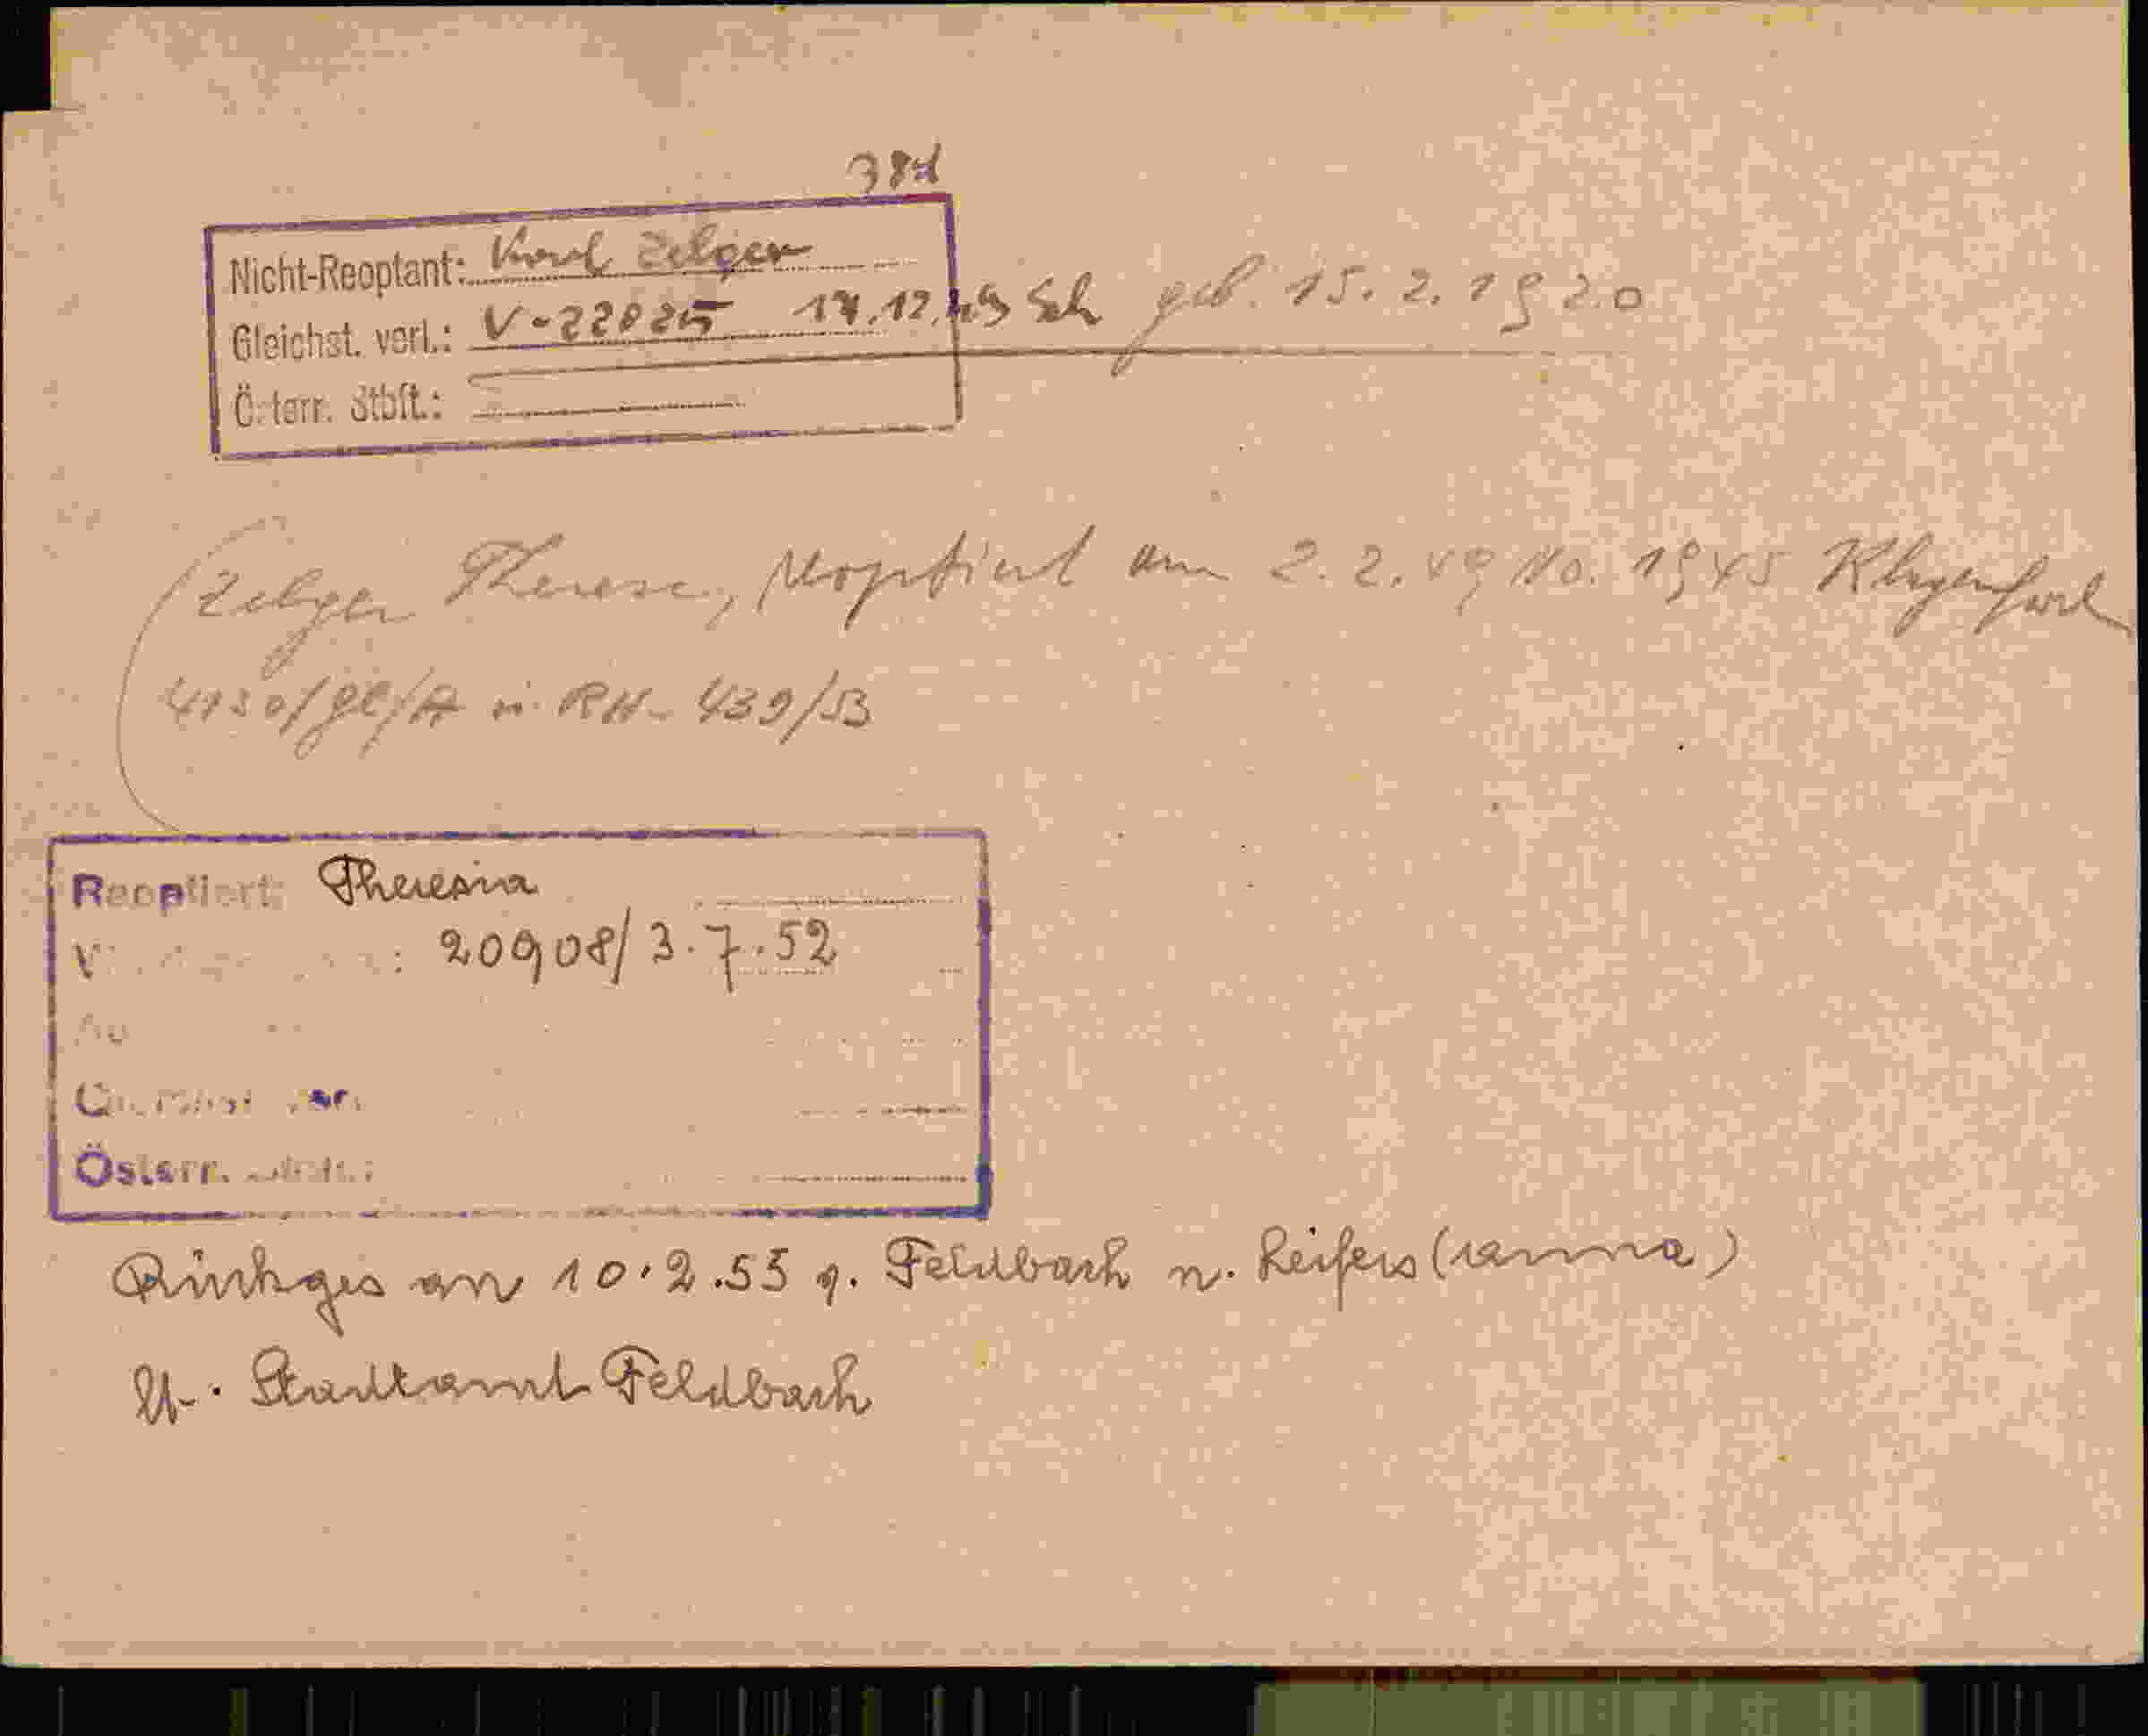 Nicht-Reoptant: Karl Zelger
Gleichst. verl.: V-22025 17.12.49 Sch geb. 15.2.1920
Österr. Stbft.:
(Zelger Therese, reoptiert am 2.2.49 No. 1945 Klagenfurt
4130/gl/A RH- 439/53
Reoptiert: Theresia
: 20908/3.7.52
Österr.
Rückges am 10.2.53 v. Feldbach n. Leifers (
lt. Stadtamt Feldbach